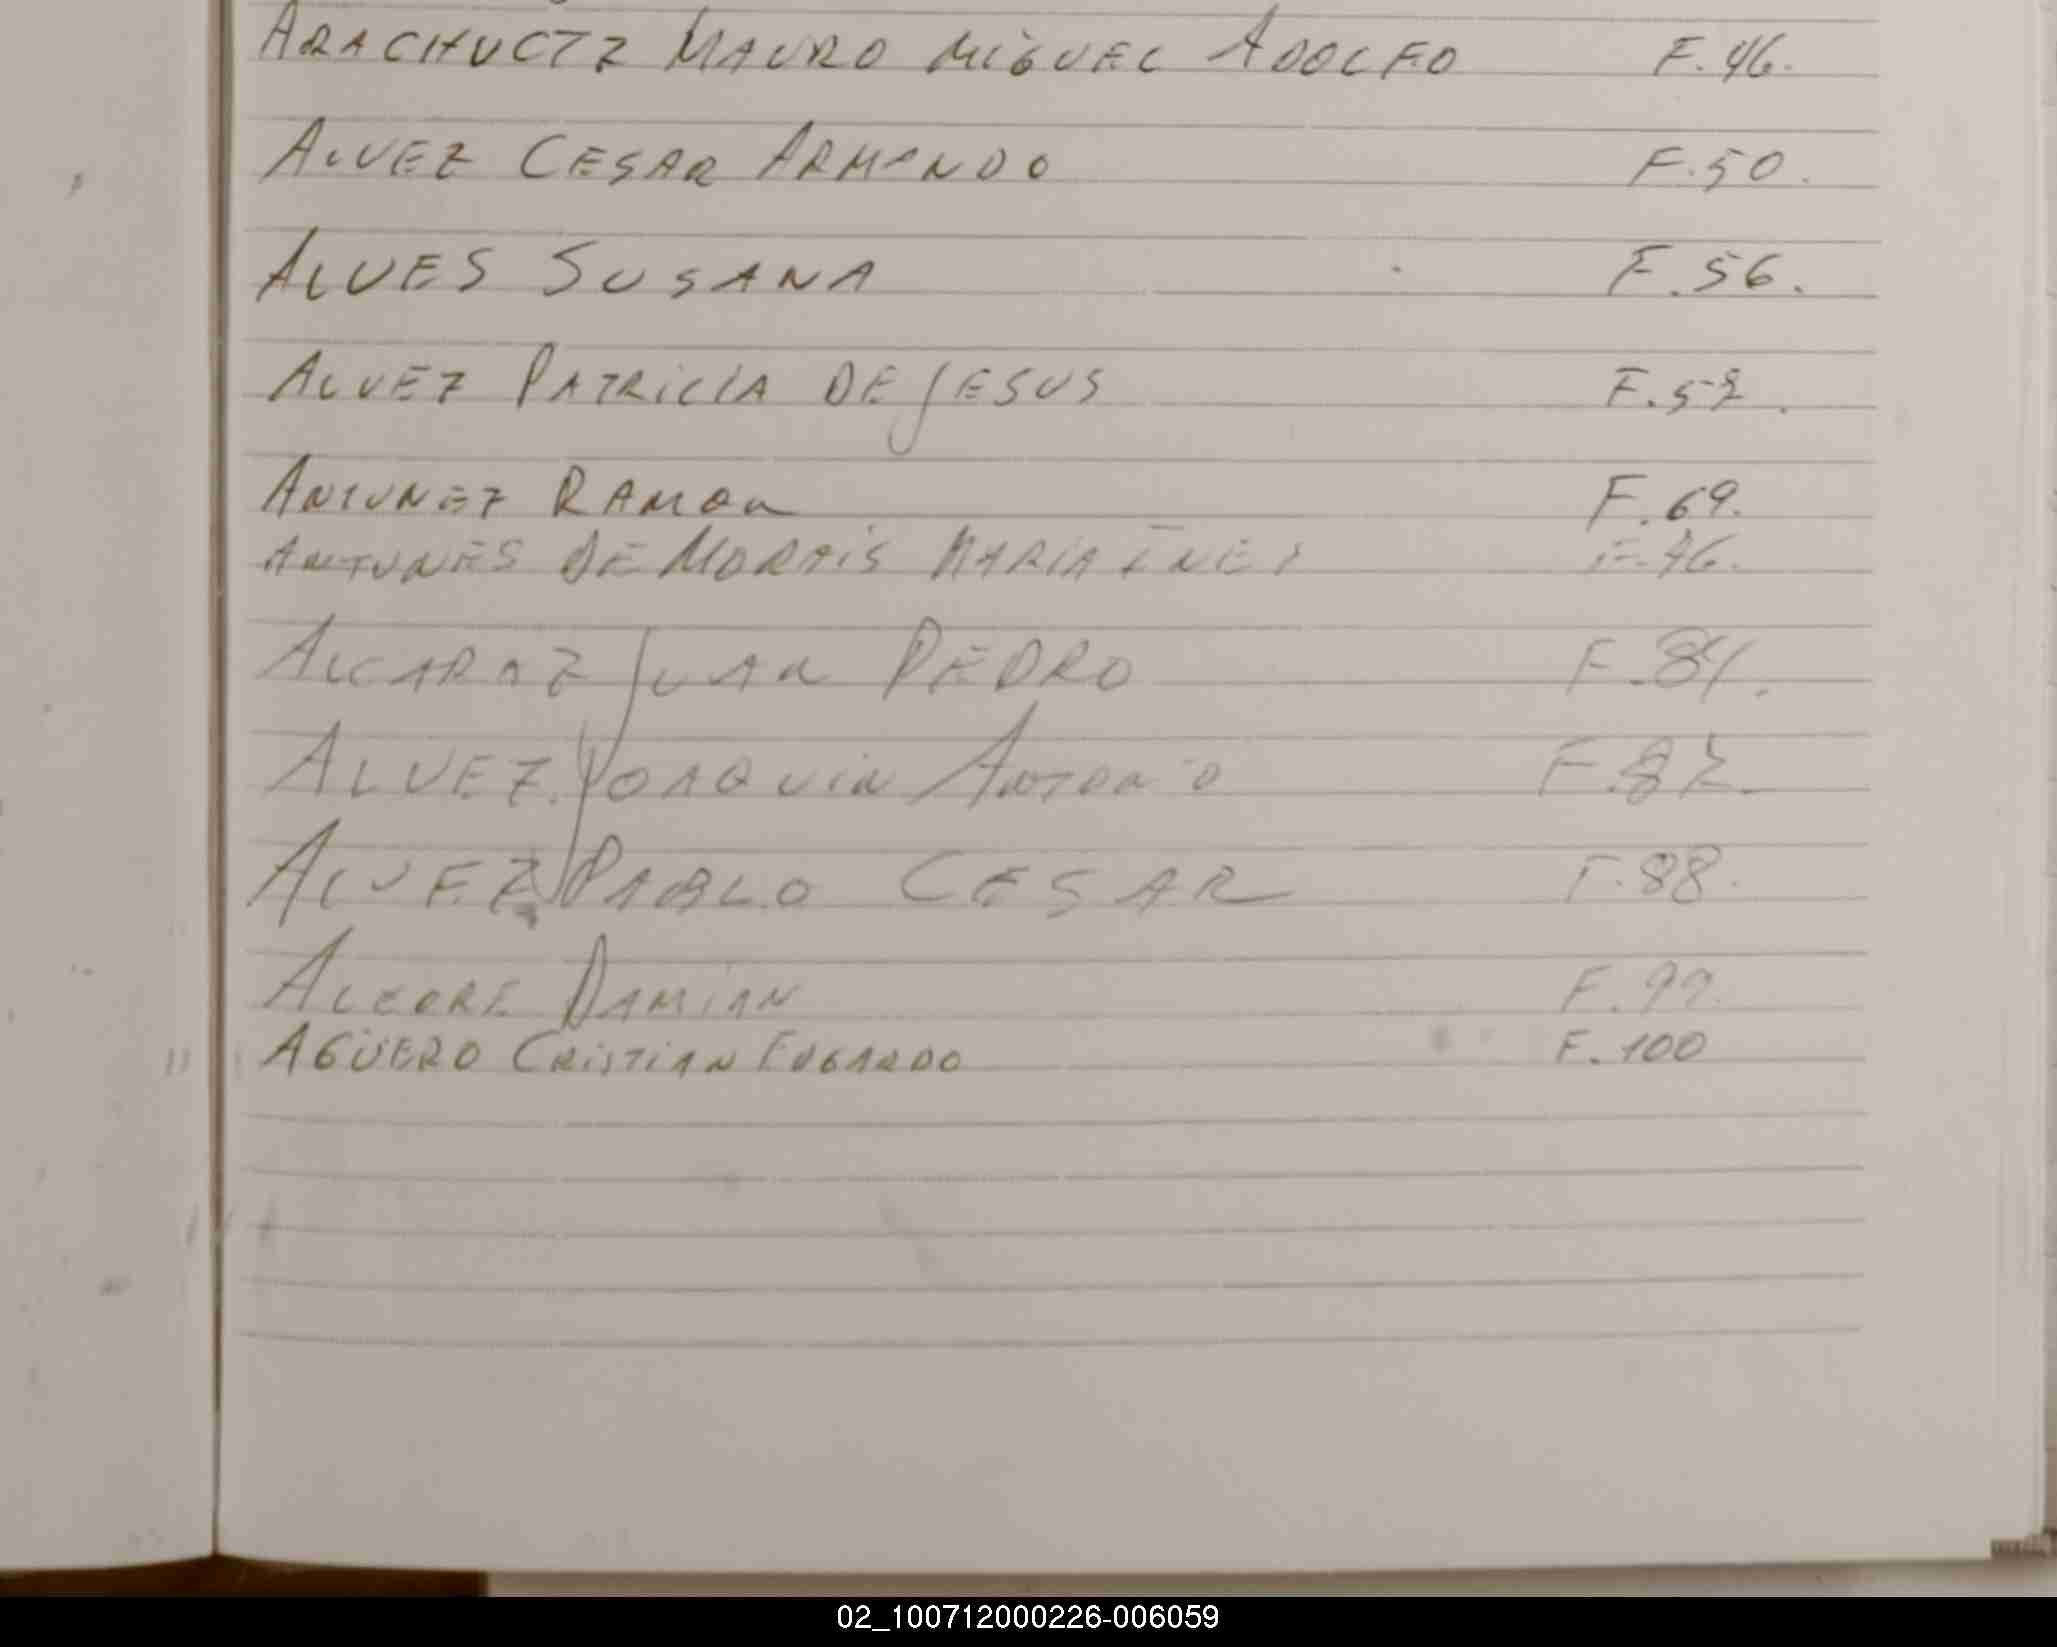 ARACHUCTZ MAURO MIGUEL ADOLFO F.46.
ALVEZ CESAR ARMANDO F.50.
ALVES SUSANA F.56.
ALVEZ PATRICIA DE JESUS F.57.
ANTUNEZ RAMON F.69.
ANTUNES DE MORAIS MARIA INES F.76.
ALCARAZ JUAN PEDRO F.84.
ALVEZ JOAQUIN ANTONIO F.87.
ALVEZ PABLO CESAR F.88.
ALEGRE DAMIAN F.99.
AGÜERO CRISTIAN EDGARDO F.100
02_100712000226-006059